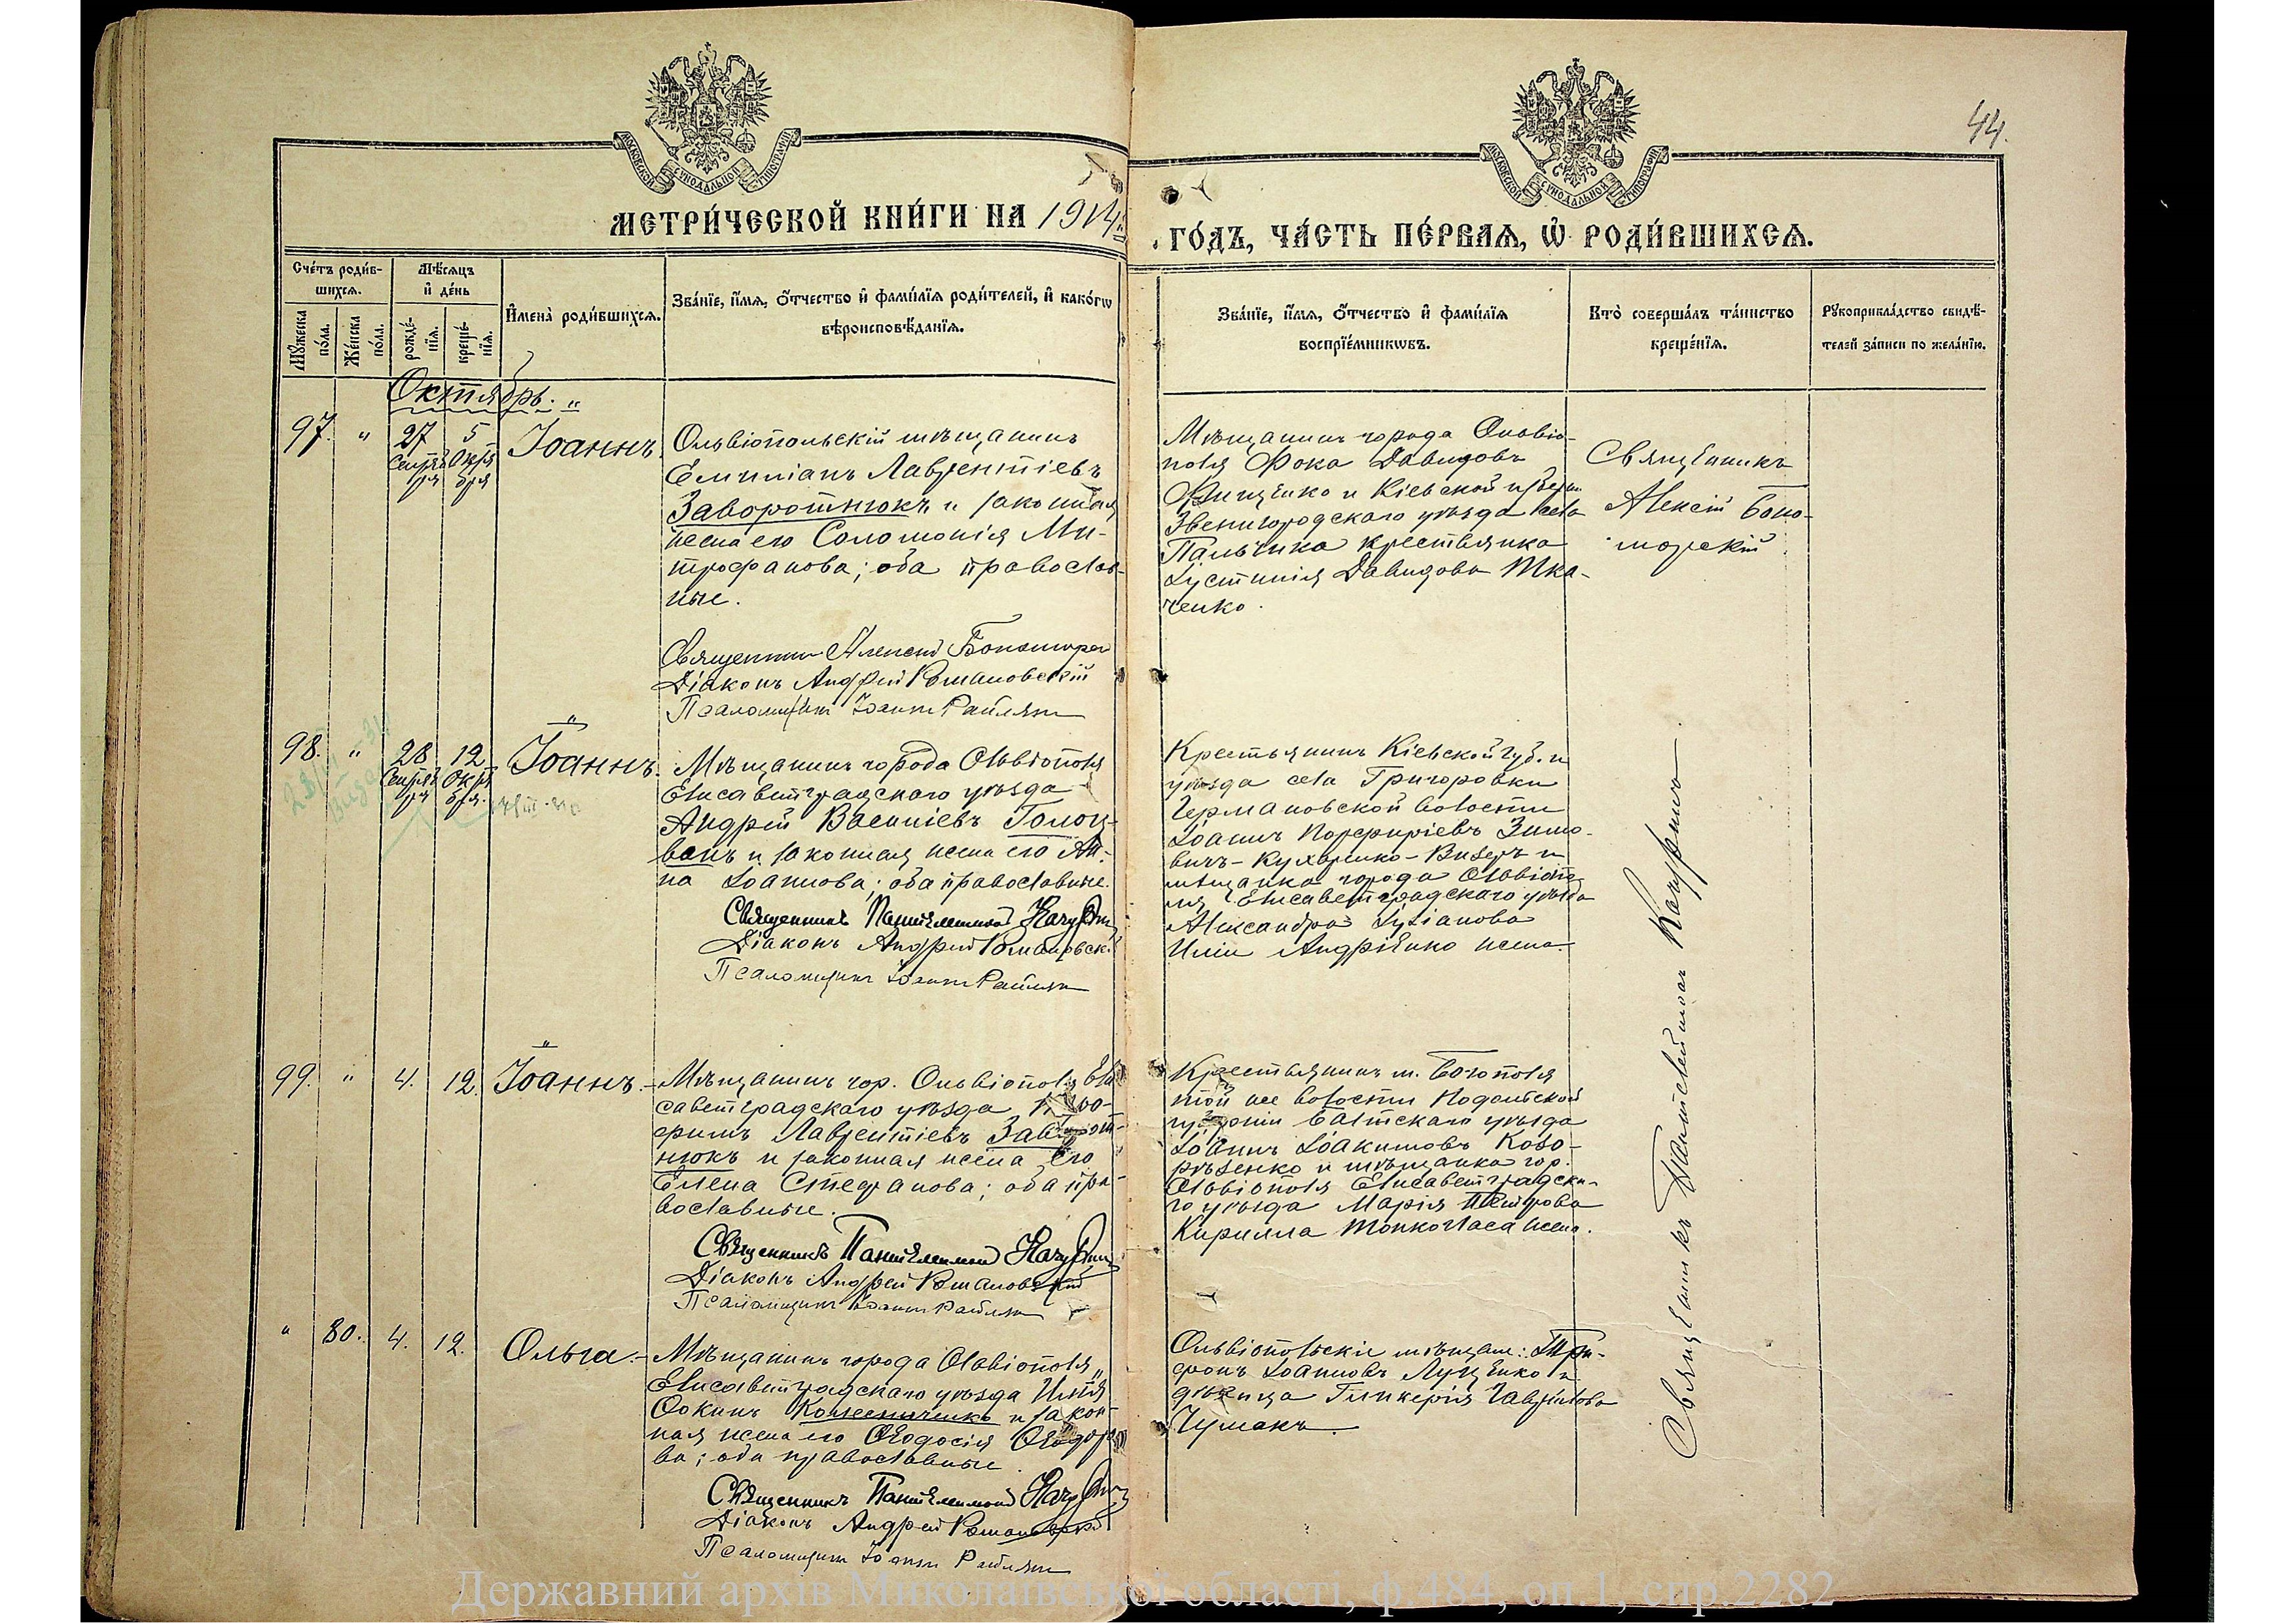 44.
МОСКОВСКОЙ СѴНОДАЛЬНОЙ ТИПОГРАФІИ
МОСКОВСКОЙ СѴНОДАЛЬНОЙ ТИПОГРАФІИ
МЕТРИ́ЧЕСКОЙ КНИ́ГИ НА 1914
ГО́ДЪ, ЧА́СТЬ ПЕ́РВАЯ, Ѡ РОДИ́ВШИХСЯ.
Сче́тъ роди́в-
шихся.
Мѣ́сяцъ
и де́нь
Мꙋ́жеска
по́ла.
Же́нска
по́ла.
рожде́-
нїя.
креще́-
нїя.
И҆мена̀ роди́вшихся.
Зва́нїе, и҆́мя, ѻ҆́тчество и҆ фами́лїя роди́телей, и҆ како́гѡ
вѣроисповѣ́данїя.
Зва́нїе, и҆́мя, ѻ҆́тчество и҆ фами́лїя
воспрїе́мникѡвъ.
Кто̀ соверша́лъ та́инство
креще́нїя.
Рꙋкоприкла́дство свидѣ́-
телей за́писи по жела́нїю.
Октябрь.
97. " 27 5 Іоаннъ.
Сентяб Октя
ря бря
Ольвіопольскій мѣщанинъ
Емиліанъ Лаврентіевъ
Заворотнюкъ и законная
жена его Соломонія Ми-
трофанова; оба православ-
ные.
Священникъ Алексій
Діаконъ Андрей Романовскій
Псаломщикъ Іоаннъ
Мѣщанинъ города Ольвіо-
поля Фока Давидовъ
и Кіевской губерн.
Звенигородскаго уѣзда села
Пальчика крестьянка
Іустинія Давидова Тка-
ченко.
Священникъ
Алексій Боно-
морскій
98. " 28 12 Іоаннъ.
Сентяб Октя
ря бря.
Мѣщанинъ города Ольвіополя
Елисаветградскаго уѣзда
Андрей Василіевъ Голов-
ванъ и законная жена его Ан-
на Іоаннова; оба православные.
Священникъ Пантелеимонъ
Діаконъ Андрей Романовскій
Псаломщикъ Іоаннъ
Крестьянинъ Кіевской губ. и
уѣзда села Григоровки
Германовской волости
Іоаннъ Порфиріевъ Зино-
вичъ-Кухаренко- и
мѣщанка города Ольвіопо-
ля Елисаветградскаго уѣзда
Александра Іуліанова
Иліи Андріенко жена.
99. " 4. 12. Іоаннъ.
Мѣщанинъ гор. Ольвіополя Ели
саветградскаго уѣзда
Лаврентіевъ Заворот-
нюкъ и законная жена его
Елена Стефанова; оба пра-
вославные.
Священникъ Пантелеимонъ
Діаконъ Андрей Романовскій
Псаломщикъ Іоаннъ
Крестьянинъ м. Богополя
той же волости Подольской
губерніи Балтскаго уѣзда
Іоаннъ Іоакимовъ Козо-
рѣзенко и мѣщанка гор.
Ольвіополя Елисаветградска-
го уѣзда Марія Петрова
Кирилла Тонкогласа жена.
" 80. 4. 12. Ольга.
Мѣщанинъ города Ольвіополя,
Елисаветградскаго уѣзда Илія
Колесниченко и закон-
ная жена его Ѳеодосія Ѳеодоро
ва; оба православные.
Священникъ Пантелеимонъ
Діаконъ Андрей Романовскій
Псаломщикъ Іоаннъ
Ольвіопольскіе мѣщане: Три-
фонъ Іоанновъ Луценко и
дѣвица Гликерія Гаврилова
Чумакъ.
Священникъ Пантелеимонъ
Державний архів Миколаївської області, ф.484, оп.1, спр.2282